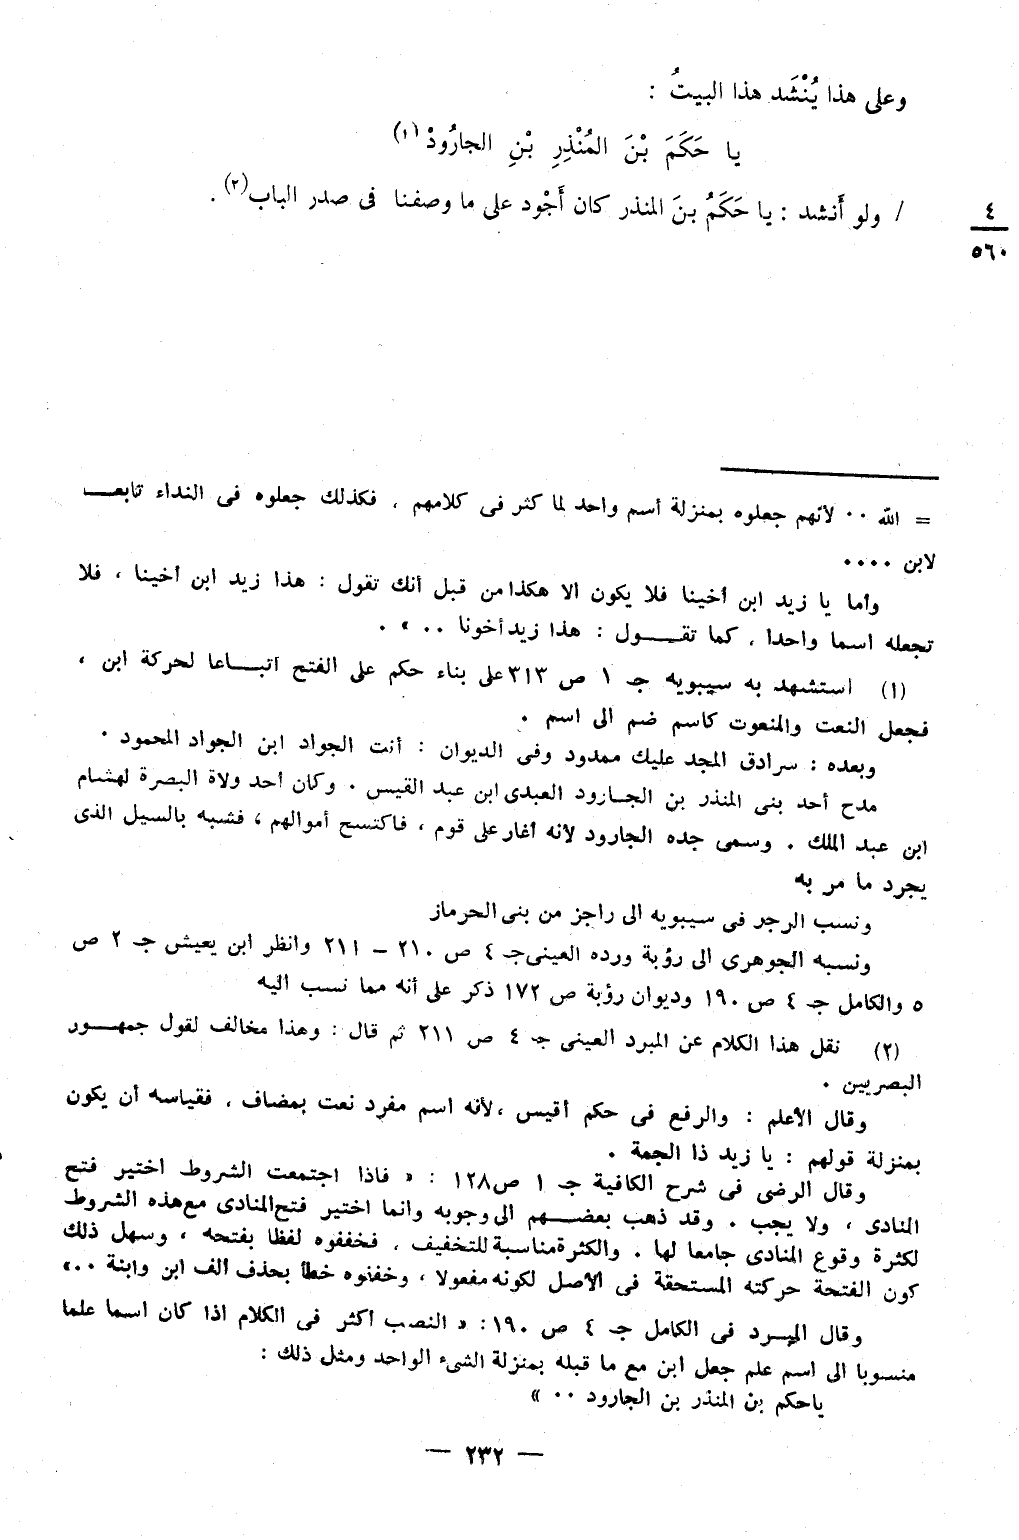 وعلى هذا يُنْشَد هذا البيتُ :
يا حَكَمَ بْنَ المُنْذِرِ بْنِ الجارُودْ (١)
/ ولو أَنشد : يا حَكَمُ بنَ المنذر كان أَجْود على ما وصفنا فى صدر الباب (٢) .
٤
٥٦٠
= الله ٠٠ لأنهم جعلوه بمنزلة اسم واحد لما كثر فى كلامهم ، فكذلك جعلوه فى النداء تابعـــا
لابن ٠٠٠٠
وأما يا زيد ابن أخينا فلا يكون الا هكذا من قبل أنك تقول : هذا زيد ابن أخينا ، فلا
تجعله اسما واحدا ، كما تقـــول : هذا زيد أخونا ٠٠ » ٠
(١) استشهد به سيبويه جـ ١ ص ٣١٣ على بناء حكم على الفتح اتبـــاعا لحركة ابن ،
فجعل النعت والمنعوت كاسم ضم الى اسم ٠
وبعده : سرادق المجد عليك ممدود وفى الديوان : أنت الجواد ابن الجواد المحمود ٠
مدح أحد بنى المنذر بن الجـارود العبدى ابن عبد القيس ٠ وكان أحد ولاة البصرة لهشام
ابن عبد الملك ٠ وسمى جده الجارود لأنه أغار على قوم ، فاكتسح أموالهم ، فشبه بالسيل الذى
يجرد ما مر به
ونسب الرجز فى سيبويه الى راجز من بنى الحرماز
ونسبه الجوهرى الى رؤبة ورده العينى جـ ٤ ص ٢١٠ – ٢١١ وانظر ابن يعيش جـ ٢ ص
٥ والكامل جـ ٤ ص ١٩٠ وديوان رؤبة ص ١٧٢ ذكر على أنه مما نسب اليه
(٢) نقل هذا الكلام عن المبرد العينى جـ ٤ ص ٢١١ ثم قال : وهذا مخالف لقول جمهـــور
البصريين ٠
وقال الأعلم : والرفع فى حكم أقيس ، لأنه اسم مفرد نعت بمضاف ، فقياسه أن يكون
بمنزلة قولهم : يا زيد ذا الجمة ٠
وقال الرضى فى شرح الكافية جـ ١ ص ١٢٨ : « فاذا اجتمعت الشروط اختير فتح
المنادى ، ولا يجب ٠ وقد ذهب بعضـــهم الى وجوبه وانما اختير فتح المنادى مع هذه الشروط
لكثرة وقوع المنادى جامعا لها ٠ والكثرة مناسبة للتخفيف ، فخففوه لفظا بفتحه ، وسهل ذلك
كون الفتحة حركته المستحقة فى الأصل لكونه مفعولا ، وخففوه خطأ بحذف ألف ابن وابنة ٠٠»
وقال المبـــرد فى الكامل جـ ٤ ص ١٩٠ : « النصب أكثر فى الكلام اذا كان اسما علما
منسوبا الى اسم علم جعل ابن مع ما قبله بمنزلة الشىء الواحد ومثل ذلك :
ياحكم بن المنذر بن الجارود ٠٠ »
— ٢٣٢ —